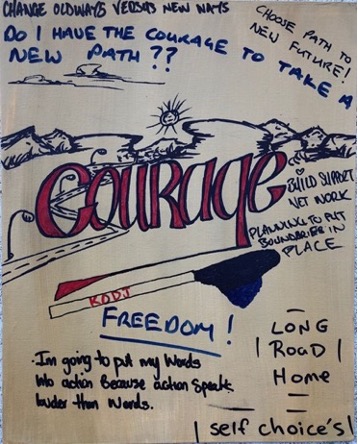 CHANGE OLDWAYS VERSUS NEW WAYS
DO I HAVE THE COURAGE TO TAKE A
NEW PATH??
CHOOSE PATH TO
NEW FUTURE!
COURAGE
BUILD SUPPORT
NET WORK
PLANNING TO PUT
BOUNDARIES IN
PLACE
FREEDOM!
.Im going to put my Words
into action Because action Speaks
louder than Words.
LONG
ROAD
Home
self choice's